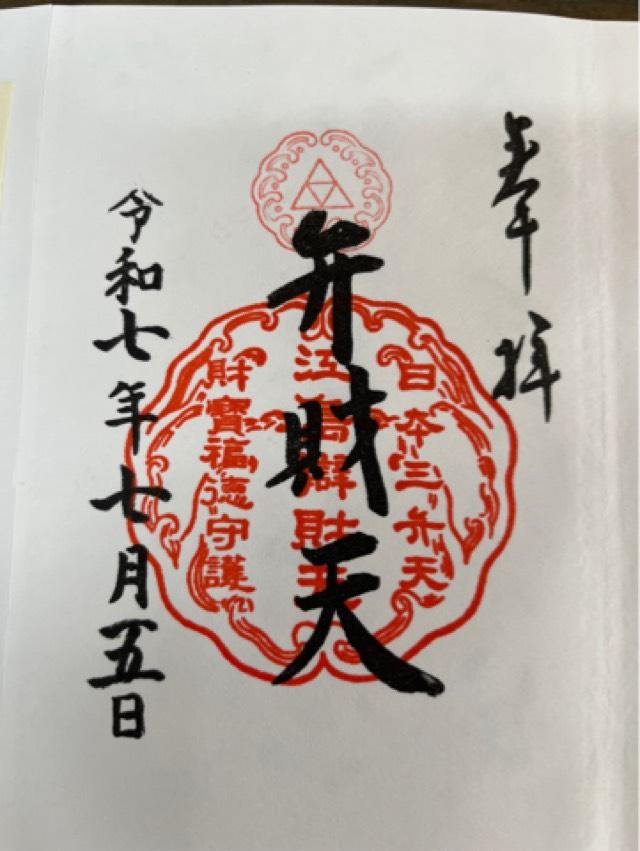 奉拝
弁財天
日本三弁天
江島辨財天
財寶福徳守護
令和七年七月五日